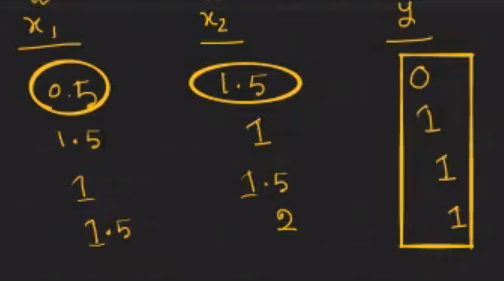 x₁ x₂ y
0.5 1.5 0
1.5 1 1
1 1.5 1
1.5 2 1